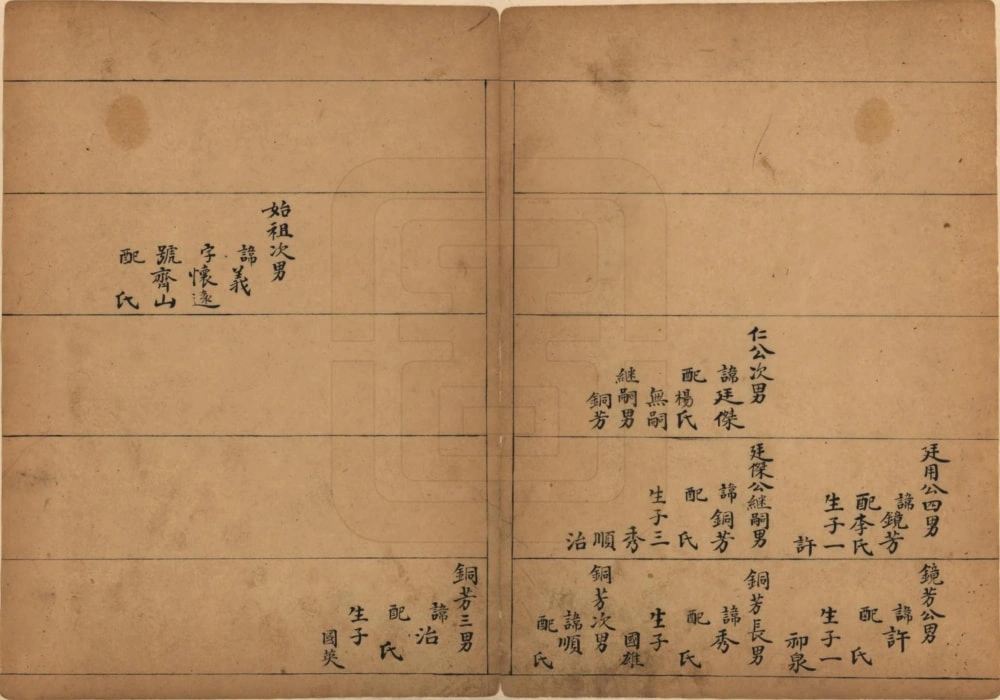 仁公次男
諱廷傑
配楊氏
無嗣
継嗣男
銅芳
廷用公四男
諱鏡芳
配李氏
生子一
許
廷傑公継嗣男
諱銅芳
配 氏
生子三
秀
順
治
鏡芳公男
諱許
配 氏
生子一
泉
銅芳長男
諱秀
配 氏
生子
國雄
銅芳次男
諱順
配 氏
始祖次男
諱義
字懷遠
號齊山
配 氏
銅芳三男
諱治
配 氏
生子
國英